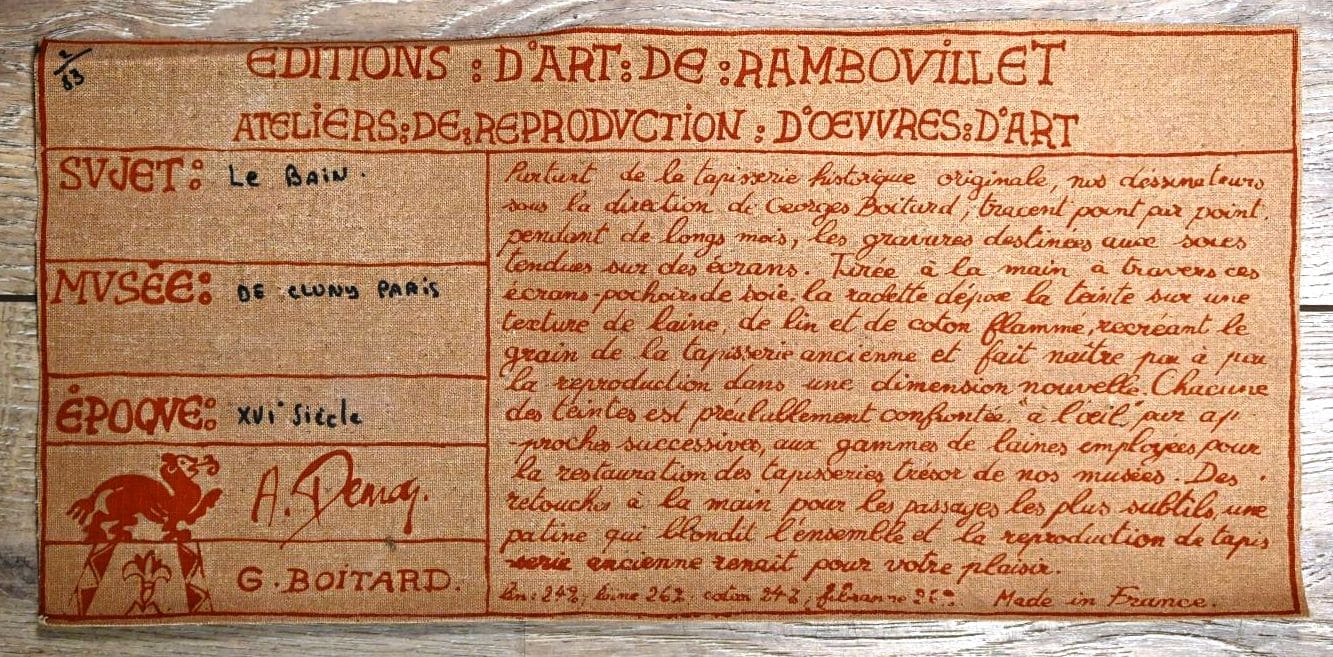 EDITIONS : D'ART : DE : RAMBOVILLET
ATELIERS : DE : REPRODVCTION : D'ŒVVRES : D'ART
SVJET : LE BAIN.
MVSÉE : DE CLUNY PARIS
ÉPOQVE : XVIe Siècle
A. Demoy.
G. BOITARD.
Partant de la tapisserie historique originale, nos déssinateurs
sous la direction de Georges Boitard, tracent point par point.
pendant de longs mois, les gravures destinées aux soies
tendues sur des écrans. Tirée à la main à travers ces
écrans-pochoirs de soie, la raclette dépose la teinte sur une
texture de laine, de lin et de coton flammé, recréant le
grain de la tapisserie ancienne et fait naître pas à pas
la reproduction dans une dimension nouvelle. Chacune
des teintes est préalablement confrontée, "à l'œil", par ap-
-proches successives, aux gammes de laines employées pour
la restauration des tapisseries trésor de nos musées. Des
retouches à la main pour les passages les plus subtils, une
patine qui blondit l'ensemble et la reproduction de tapis
-serie ancienne renait pour votre plaisir.
lin : 24%, laine 26%. coton 24%, fibranne 26% Made in France.